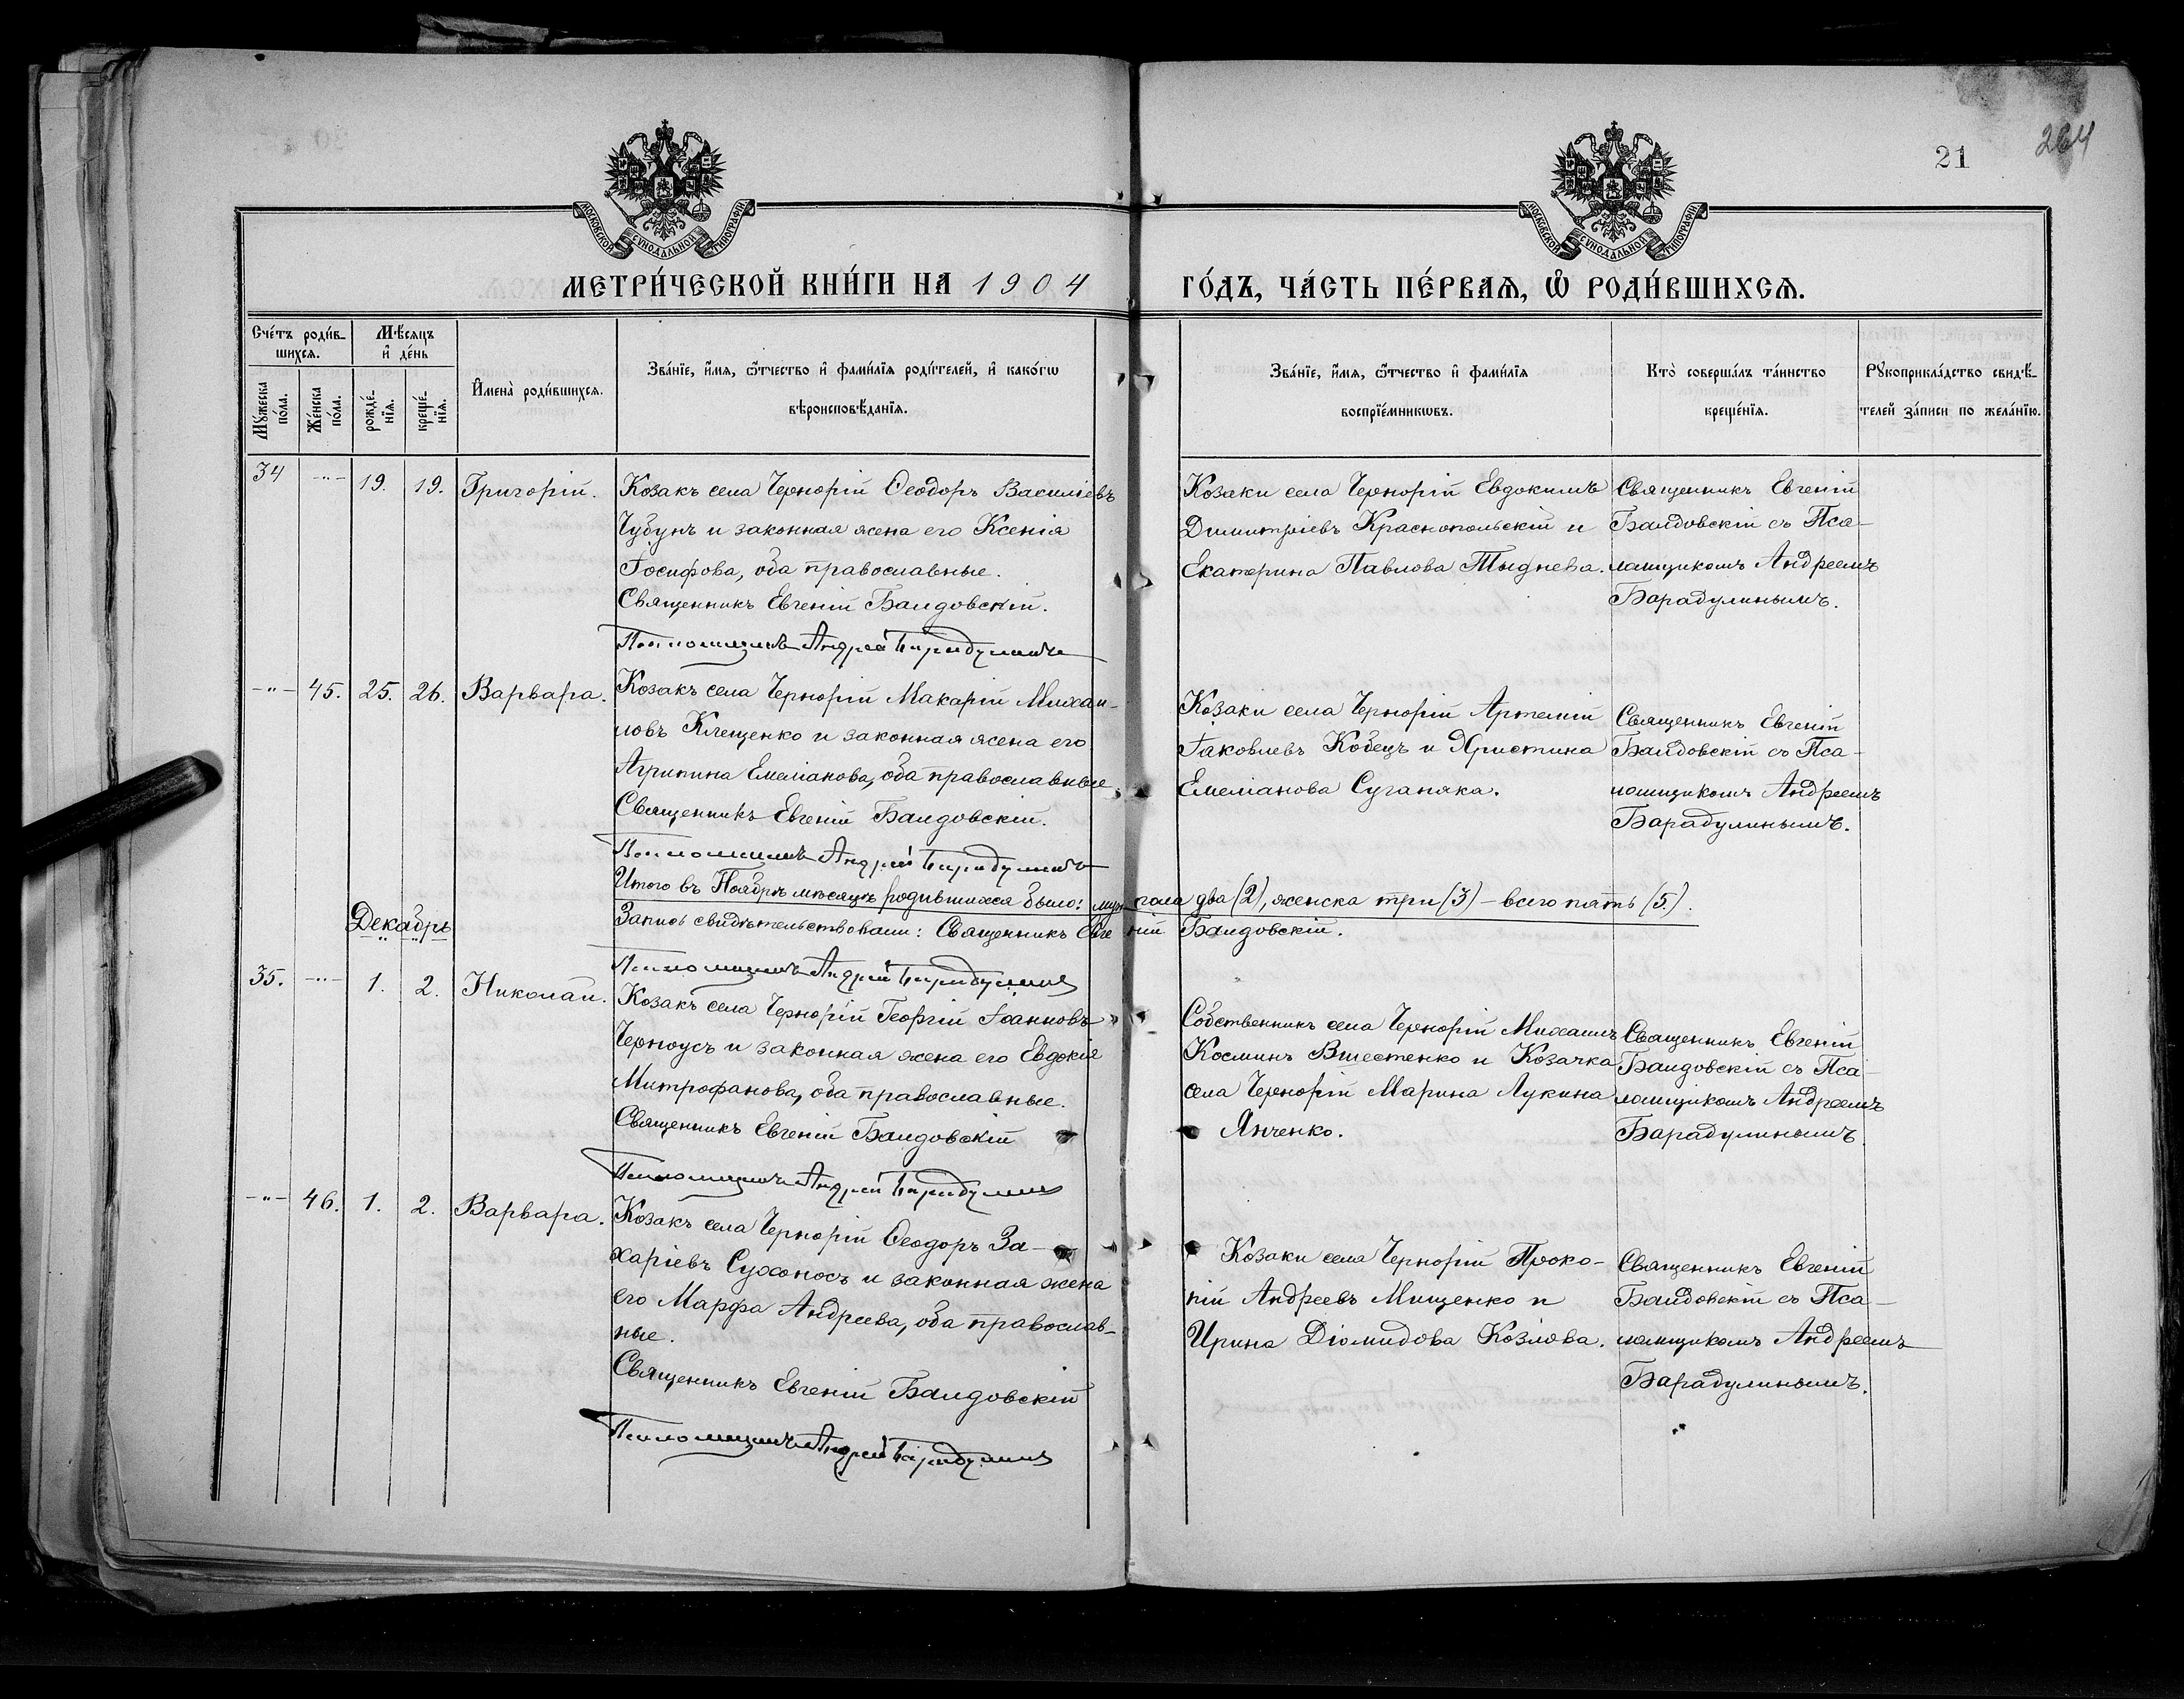 21
264
МОСКОВСКОЙ СѴНОДАЛЬНОЙ ТИПОГРАФІИ
МОСКОВСКОЙ СѴНОДАЛЬНОЙ ТИПОГРАФІИ
МЕТРИ́ЧЕСКОЙ КНИ́ГИ НА 1904 ГО́ДЪ, ЧА́СТЬ ПЕ́РВАѦ, Ѽ РОДИ́ВШИХСѦ.
Сче́тъ роди́в-
шихсѧ.
Мѣ́сѧцъ
и҆ де́нь
Мꙋ́жеска по́ла.
Же́нска по́ла.
рожде́-
нїѧ.
креще́-
нїѧ.
И҆мена̀ роди́вшихсѧ.
Зва́нїе, и҆́мѧ, ѻ҆́тчество и҆ фами́лїѧ роди́телей, и҆ како́гѡ
вѣроисповѣ́данїѧ.
Зва́нїе, и҆́мѧ, ѻ҆́тчество и҆ фами́лїѧ
воспрїе́мникѡвъ.
Кто̀ соверша́лъ та́инство
креще́нїѧ.
Рꙋкоприкла́дство свидѣ́-
телей за́писи по жела́нїю.
34 -"- 19. 19. Григорій.
Козакъ села Черногрій Ѳеодоръ Василіевъ
Чубунъ и законная жена его Ксенія
Іосифова, оба православные.
Священникъ Евгеній Баидовскій.
Псаломщикъ Андрей Барадулинъ
Козаки села Черногрій Евдокимъ
Димитріевъ Краснопольскій и
Екатерина Павлова Тыднева.
Священникъ Евгеній
Баидовскій съ Пса-
ломщикомъ Андреемъ
Барадулинымъ.
-"- 45. 25. 26. Варвара.
Козакъ села Черногрій Макарій Михаи-
ловъ Клещенко и законная жена его
Агрипина Емеліанова, оба православные
Священникъ Евгеній Баидовскій.
Псаломщикъ Андрей Барадулинъ
Козаки села Черногрій Артемій
Іаковлевъ Кобецъ и Христина
Емеліанова Суганяка.
Священникъ Евгеній
Баидовскій съ Пса-
ломщикомъ Андреемъ
Барадулинымъ.
Итого въ Ноябрѣ мѣсяцѣ родившихся было: муж. пола два (2), женска три (3) – всего пять (5).
Запись свидѣтельствовали: Священникъ Евгеній Баидовскій.
Псаломщикъ Андрей Барадулинъ
Декабрь
35. -"- 1. 2. Николай.
Козакъ села Черногрій Георгій Іоанновъ
Черноусъ и законная жена его Евдокія
Митрофанова, оба православные.
Священникъ Евгеній Баидовскій
Псаломщикъ Андрей Барадулинъ
Собственникъ села Черногрій Михаилъ
Косминъ Вшестенко и Козачка
села Черногрій Марина Лукина
Янченко.
Священникъ Евгеній
Баидовскій съ Пса-
ломщикомъ Андреемъ
Барадулинымъ.
-"- 46. 1. 2. Варвара.
Козакъ села Черногрій Ѳеодоръ За-
харіевъ Сухоносъ и законная жена
его Марфа Андреева, оба православ-
ные.
Священникъ Евгеній Баидовскій
Псаломщикъ Андрей Барадулинъ
Козаки села Черногрій Проко-
пій Андреевъ Мищенко и
Ирина Діомидова Козлова.
Священникъ Евгеній
Баидовскій съ Пса-
ломщикомъ Андреемъ
Барадулинымъ.